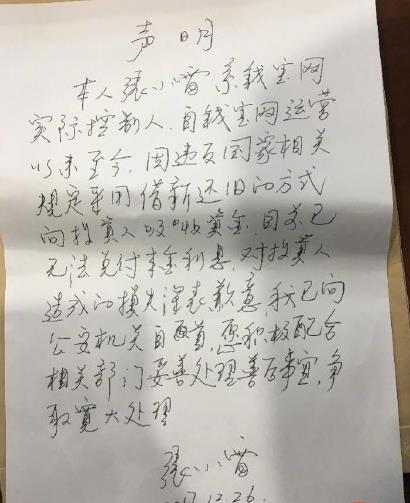 声明
本人張小雷系钱宝网
实际控制人，自钱宝网运营
以来至今，因违反国家相关
规定采用借新还旧的方式
向投資人吸收資金，目前已
无法兑付本金利息，对投資人
造成的损失深表歉意，我已向
公安机关自首，愿积极配合
相关部门妥善处理善后事宜，争
取宽大处理
張小雷
2017.12.26.